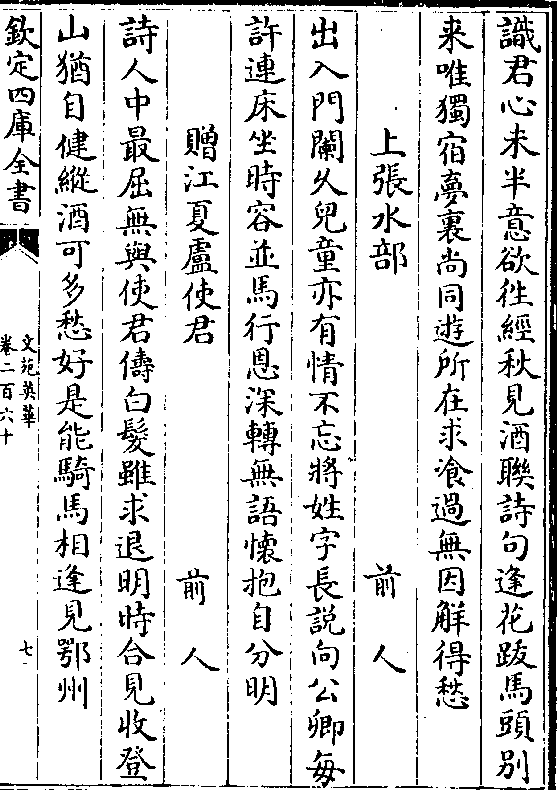 識君心未半意欲徃經秋見酒聯詩句逢花跋馬頭别
来唯獨宿夢裏尚同遊所在求飡過無因解得愁
上張水部
前人
出入門闌久兒童亦有情不忘將姓字長説向公卿每
許連床坐時容並馬行恩深轉無語懷抱自分明
贈江夏盧使君
前人
詩人中最屈無與使君儔白髮雖求退明時合見收登
山猶自健縱酒可多愁好是能騎馬相逢見鄂州
欽定四庫全書
文苑英華
卷二百六十
七